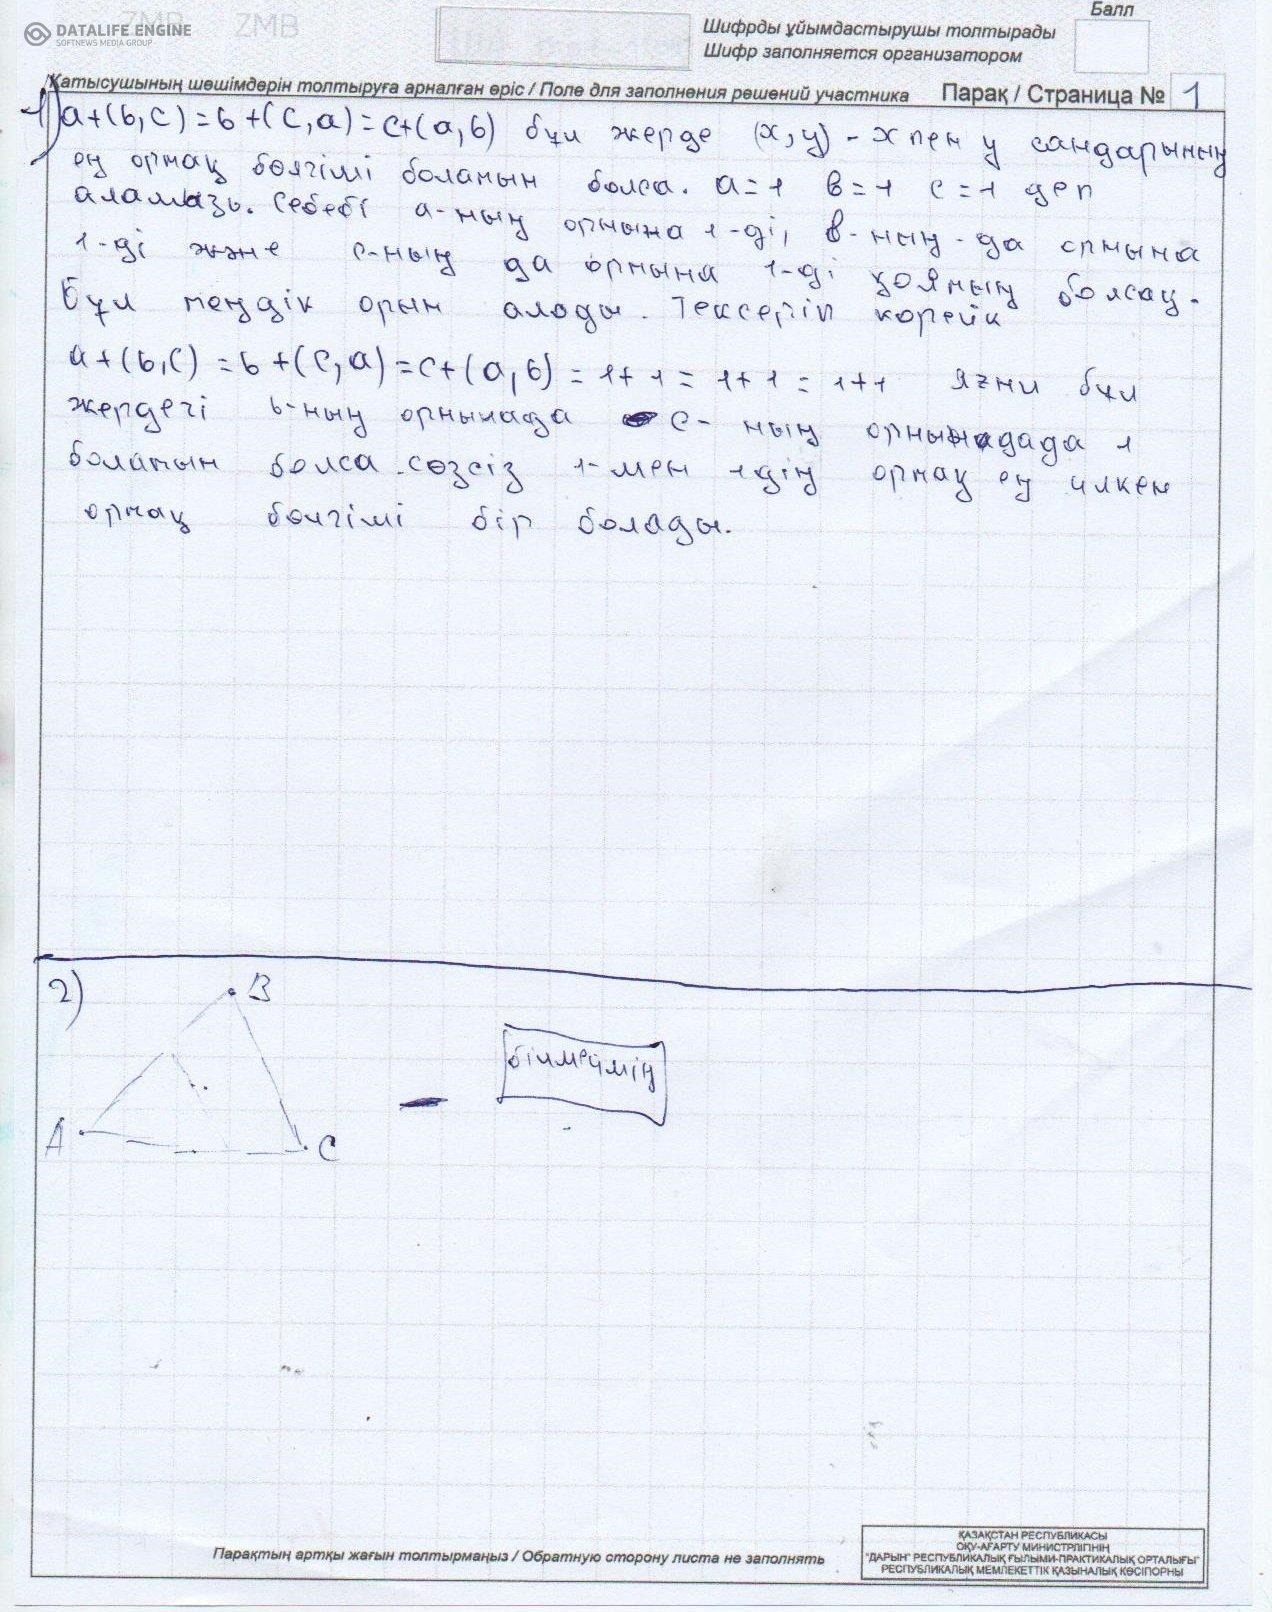 DATALIFE ENGINE
SOFTNEWS MEDIA GROUP
ZMB
ZMB
Балл
Шифрды ұйымдастырушы толтырады
Шифр заполняется организатором
Қатысушының шешімдерін толтыруға арналған өріс / Поле для заполнения решений участника
Парақ / Страница № 1
1) a+(b,c)=b+(c,a)=c+(a,b) бұл жерде (x,y) - x пен y сандарының
ең ортақ бөлгімі болатын болса. a=1 b=1 c=1 деп
аламызь. Себебі a-ның орнына 1-ді, b-ның-да орнына
1-ді және c-ның да орнына 1-ді қоятың болсақ.
Бұл теңдік орын алады. Тексеріп көрейік
a+(b,c)=b+(c,a)=c+(a,b)=1+1=1+1=1+1 Яғни бұл
жердегі b-ның орнынада c-ның орнынадада 1
болатын болса сөзсіз 1-мен 1дің ортақ ең үлкен
ортақ бөлгімі бір болады.
2)
B
A
C
- білмеймің
Парақтың артқы жағын толтырмаңыз / Обратную сторону листа не заполнять
ҚАЗАҚСТАН РЕСПУБЛИКАСЫ
ОҚУ-АҒАРТУ МИНИСТРЛІГІНІҢ
"ДАРЫН" РЕСПУБЛИКАЛЫҚ ҒЫЛЫМИ-ПРАКТИКАЛЫҚ ОРТАЛЫҒЫ"
РЕСПУБЛИКАЛЫҚ МЕМЛЕКЕТТІК ҚАЗЫНАЛЫҚ КӘСІПОРНЫ